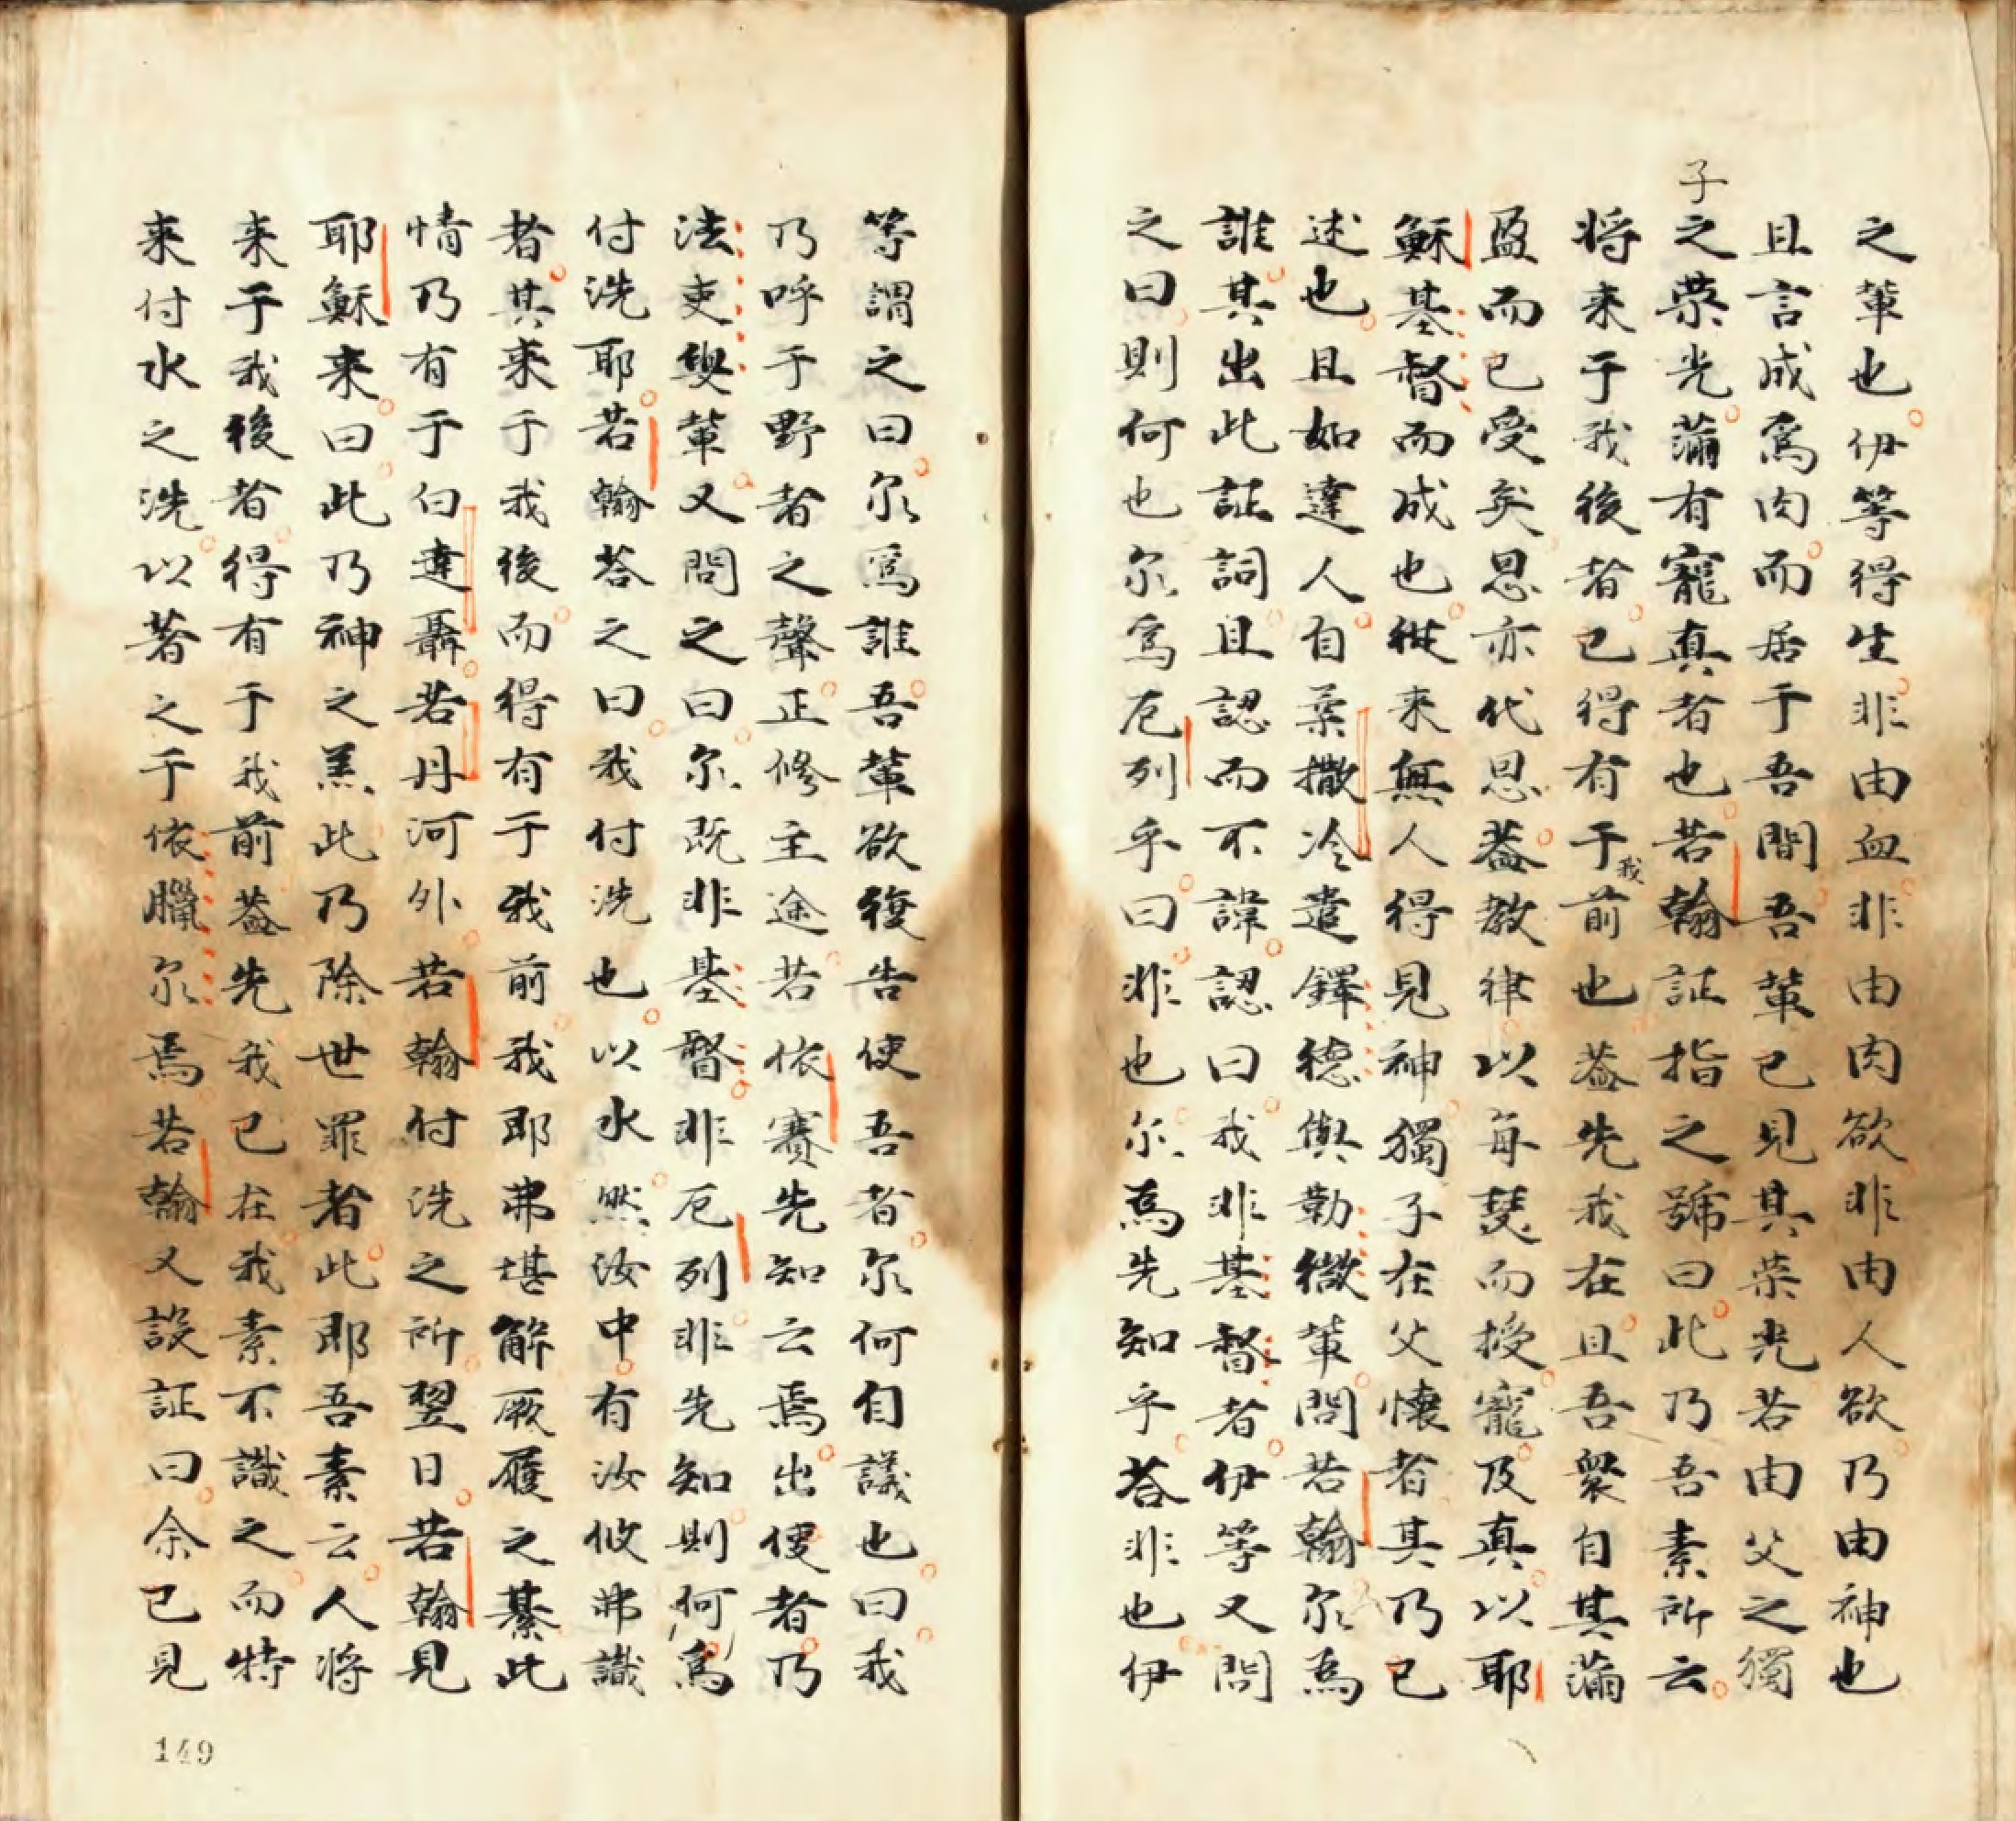 之輩也伊等得生非由血非由肉欲非由人欲乃由神也
且言成爲肉而居于吾間吾輩已見其荣光若由父之獨
子
之荣光滿有寵真者也若翰証指之號曰此乃吾素所云
将来于我後者已得有于我前也蓋先我在且吾衆自其滿
盈而已受矣恩亦代恩蓋教律以每瑟而授寵及真以耶
穌基督而成也従来無人得見神獨子在父懐者其乃已
述也且如達人自葉撒冷遣鐸德與勒微輩問若翰尔爲
誰其出此証詞且認而不諱認曰我非基督者伊等又問
之曰則何也尔爲厄列乎曰非也尔爲先知乎荅非也伊
等謂之曰尔爲誰吾輩欲復告使吾者尔何自議也曰我
乃呼于野者之聲正修主途若依賽先知云焉出使者乃
法吏㛮輩又問之曰尔既非基督非厄列非先知則何爲
付洗耶若翰荅之曰我付洗也以水然汝中有汝攸弗識
者其来于我後而得有于我前我耶弗堪解厥履之綦此
情乃有于白達聶若丹河外若翰付洗之所翌日若翰見
耶穌来曰此乃神之羔此乃除世罪者此耶吾素云人将
来于我後者得有于我前蓋先我已在我素不識之而特
来付水之洗以著之于依臘尔焉若翰又設証曰余已見
149